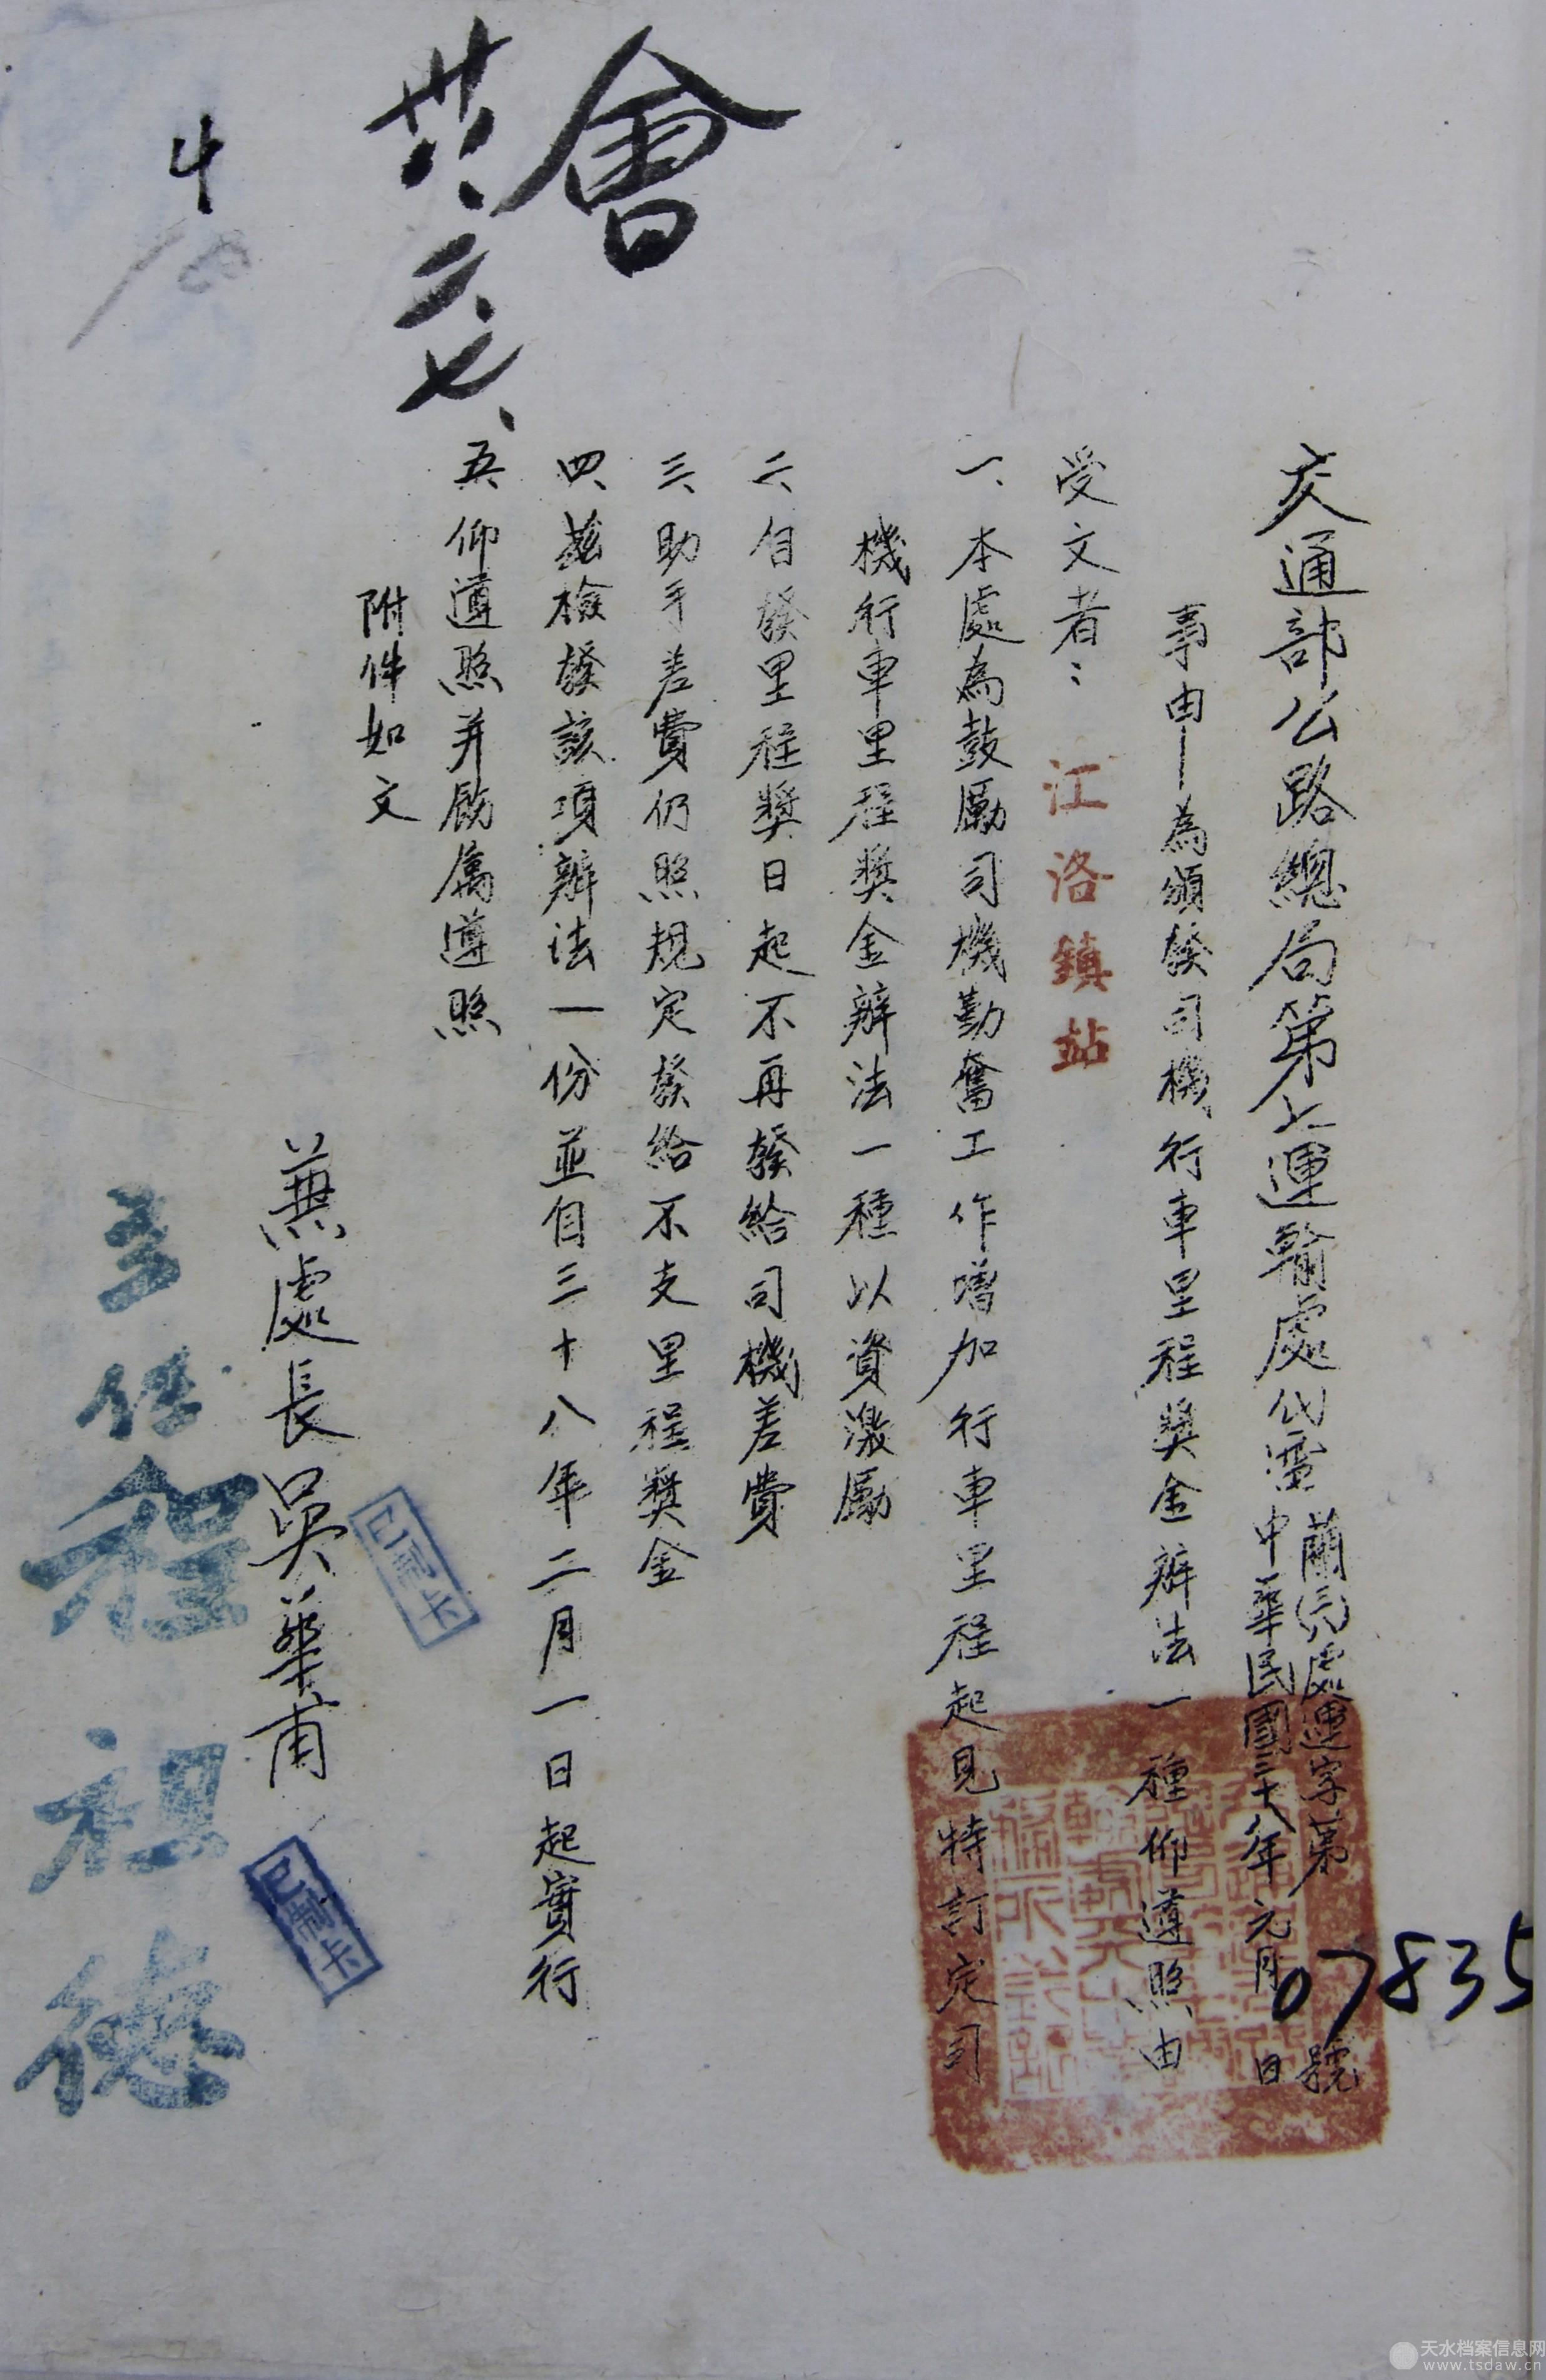 交通部公路總局第七運輸處代電
蘭(卅八)處運字第07835號
中華民國三十八年元月 日
事由—為頒發司機行車里程獎金辦法一種仰遵照由
受文者：江洛鎮站
一、本處為鼓勵司機勤奮工作增加行車里程起見特訂定司
機行車里程獎金辦法一種以資激勵
二、自發里程獎日起不再發給司機差費
三、助手差費仍照規定發給不支里程獎金
四、茲檢發該項辦法一份並自三十八年二月一日起實行
五、仰遵照并飭屬遵照
附件如文
兼處長吳華甫
主任程祖德
會
廿八、二、七、
天水档案信息网
www.tsdaw.cn